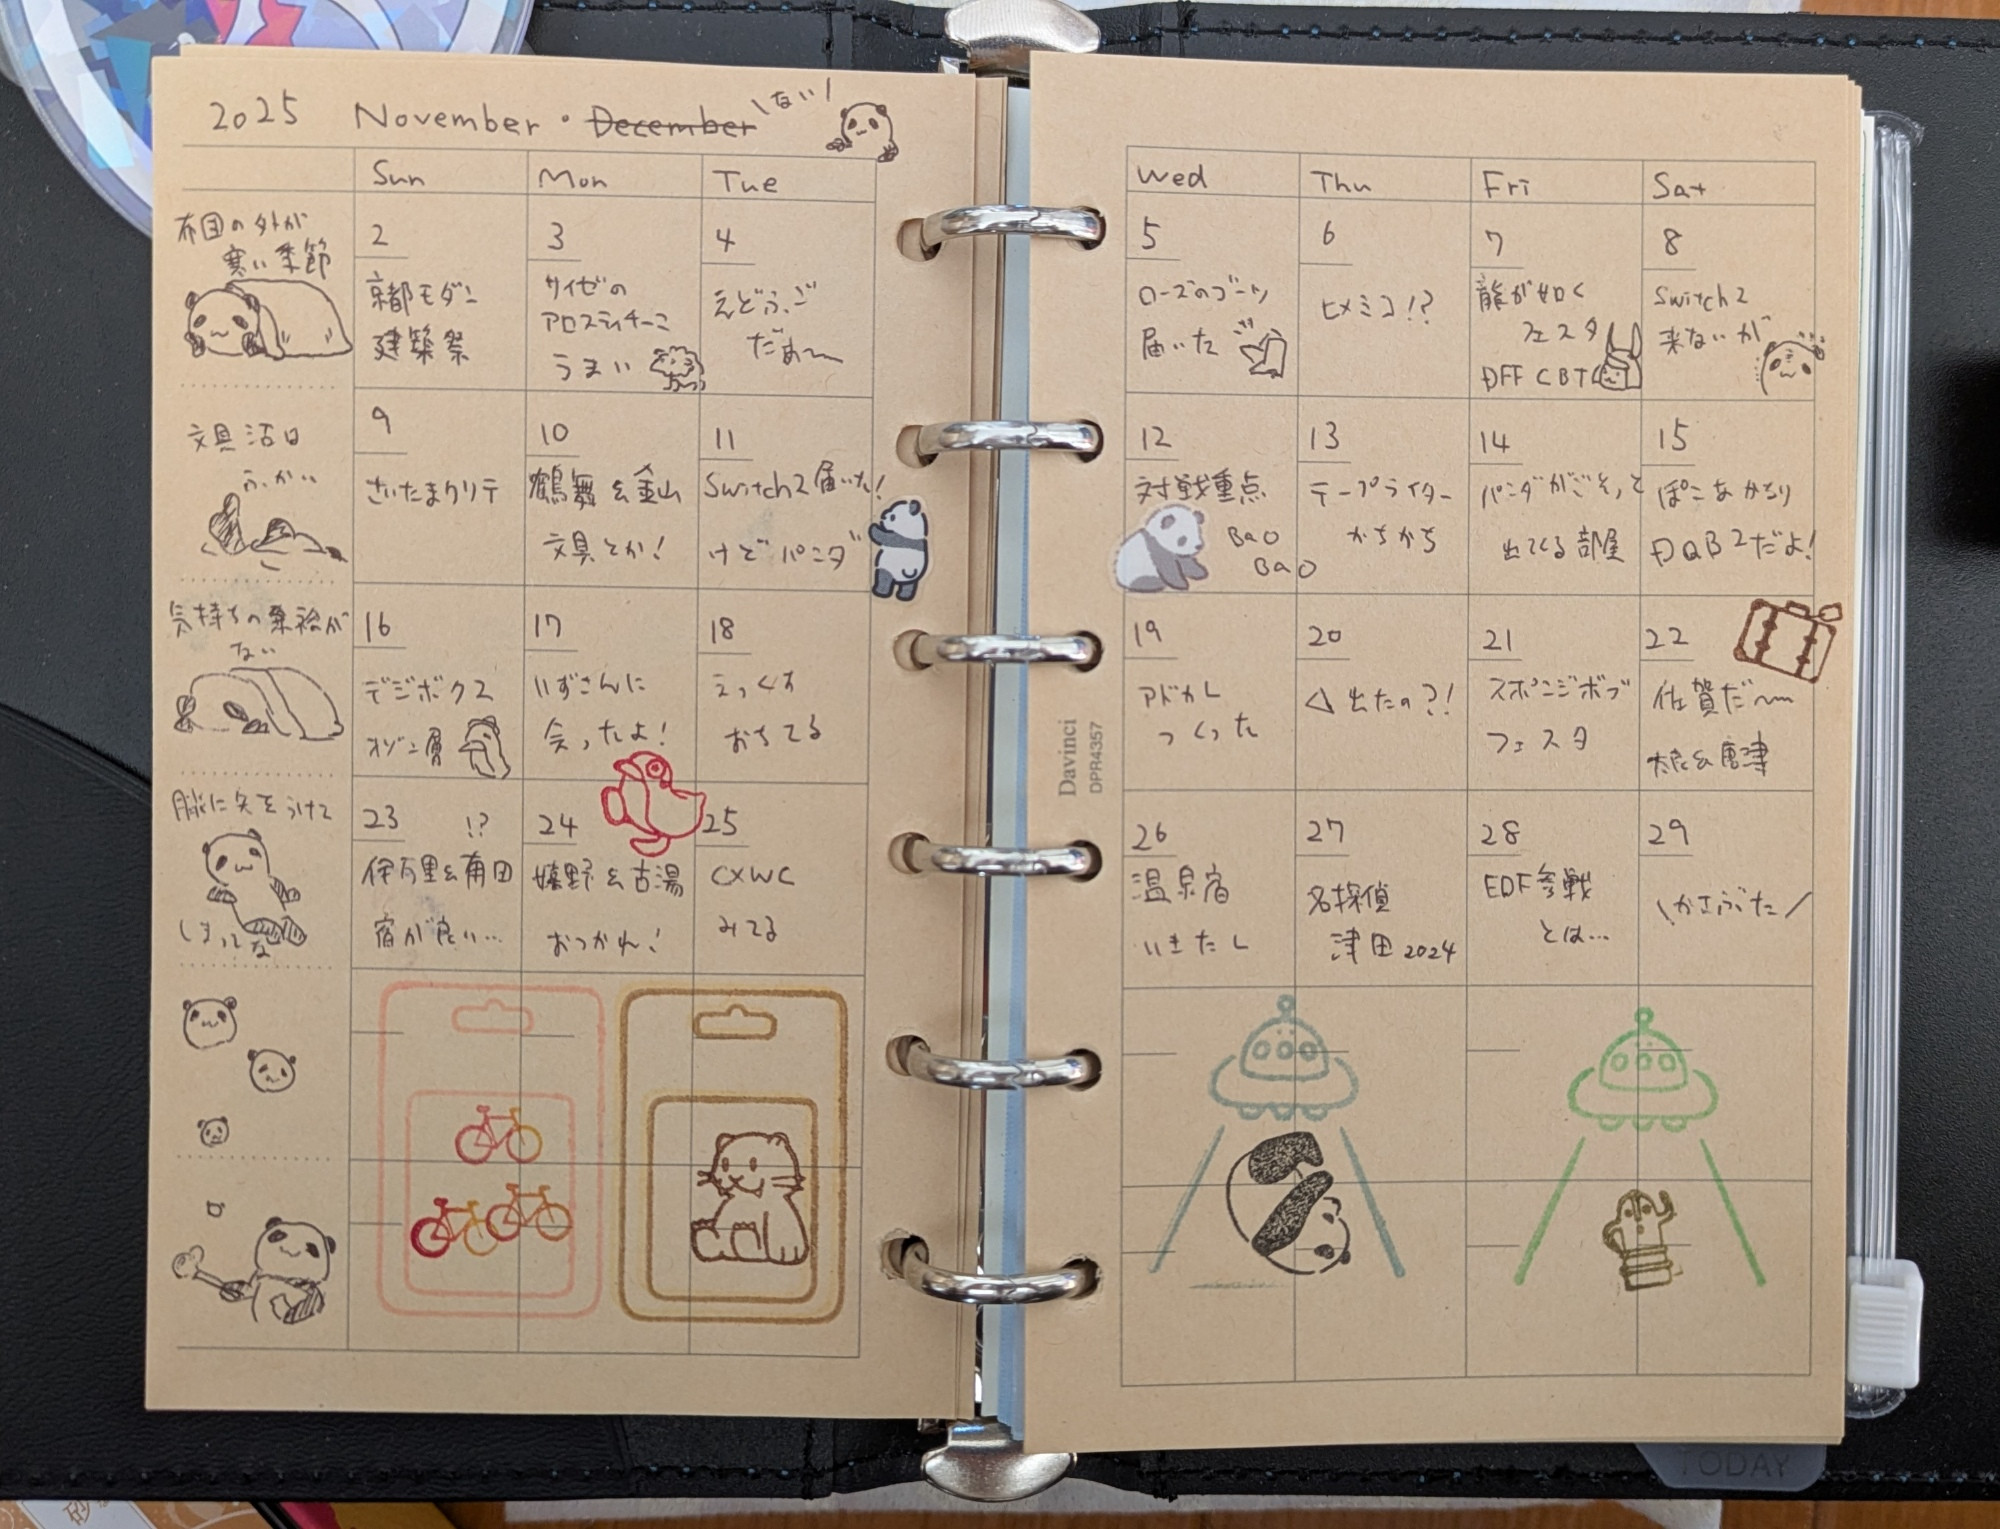 2025 November・December \ない/
Sun Mon Tue Wed Thu Fri Sat
布団の外が
寒い季節
2
京都モダン
建築祭
3
サイゼの
アロスティチーニ
うまい
4
えどふご
だぁ〜
5
ローズのブーツ
届いた
6
ヒメミコ!?
7
龍が如く
フェスタ
DFF CBT
8
Switch2
来ないが
文具沼は
ふかい
9
さいたまクリテ
10
鶴舞&金山
文具とか!
11
Switch2届いた!
けどパンダ
12
対戦重点
BaO
BaO
13
テープライター
かちかち
14
パンダがごそっと
出てくる部屋
15
ぽこあかるり
DQB2だよ!
気持ちの余裕が
ない
16
デジボクス
オゾン層
17
いずさんに
会ったよ!
18
えっくす
おちてる
19
アドカレ
つくった
20
△出たの?!
21
スポンジボブ
フェスタ
22
佐賀だ〜
&唐津
脈に矢をうけて
しまってな
23 !?
伊万里&有田
宿が良い…
24
嬉野&古湯
おつかれ!
25
CXWC
みてる
26
温泉宿
いきたし
27
名探偵
津田2024
28
EDF参戦
とは…
29
\かさぶた/
Davinci
DPR4357
TODAY